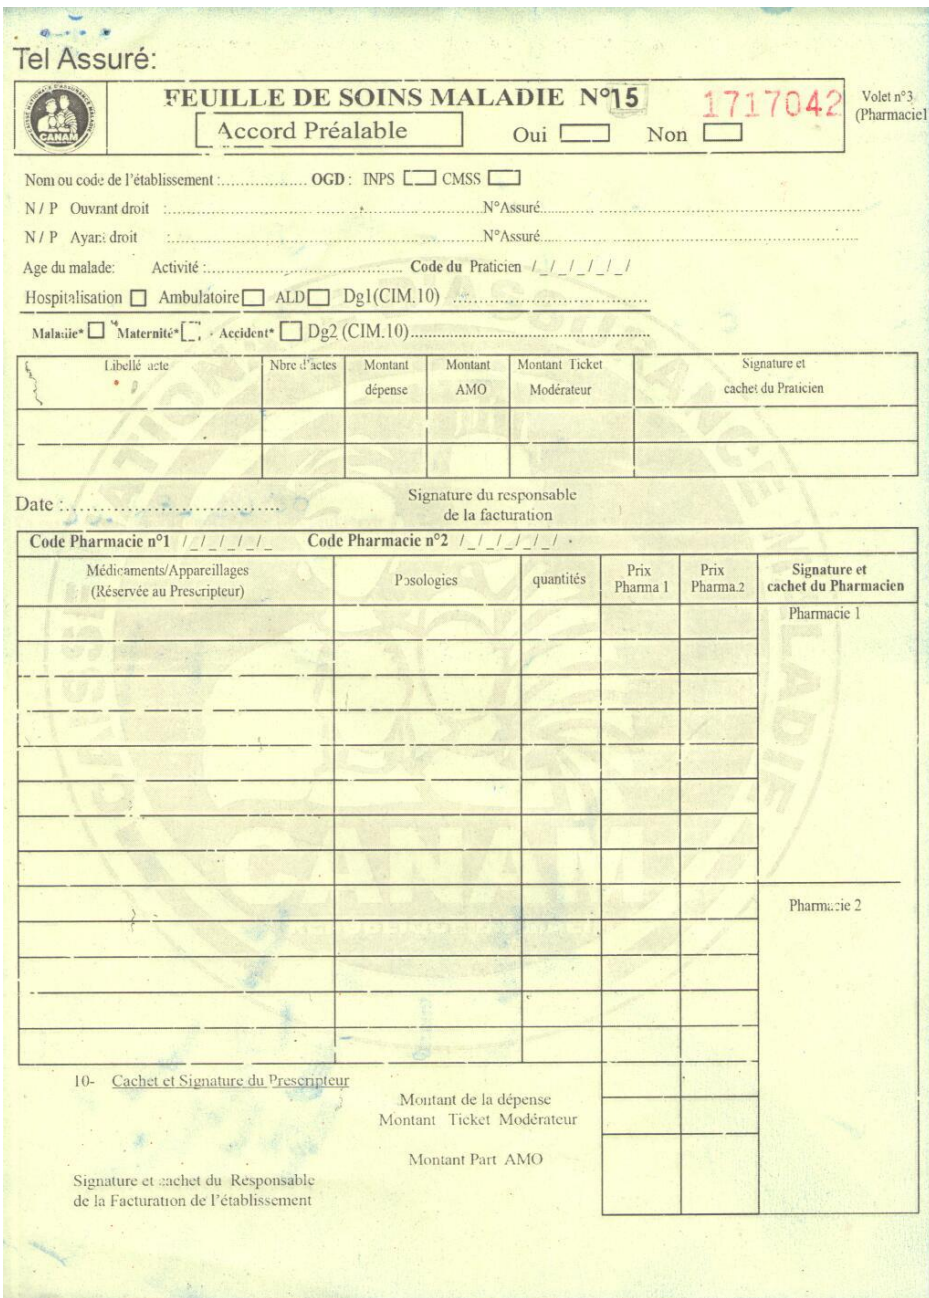 Tel Assuré:
FEUILLE DE SOINS MALADIE N°15 1717042
Volet n°3
(Pharmacie)
Accord Préalable Oui Non
CANAM
Nom ou code de l'établissement :.................. OGD : INPS CMSS
N / P Ouvrant droit :.......................................................N°Assuré.......................................................
N / P Ayant droit :.......................................................N°Assuré.......................................................
Age du malade: Activité :........................................ Code du Praticien /_/_/_/_/_/
Hospitalisation Ambulatoire ALD Dg1(CIM.10) ........................................
Maladie* Maternité* Accident* Dg2 (CIM.10)................................................
Libellé acte Nbre d'actes Montant dépense Montant AMO Montant Ticket Modérateur Signature et cachet du Praticien
Date :.................................
Signature du responsable
de la facturation
Code Pharmacie n°1 /_/_/_/_/_ Code Pharmacie n°2 /_/_/_/_/_/
Médicaments/Appareillages (Réservée au Prescripteur) Posologies quantités Prix Pharma 1 Prix Pharma.2 Signature et cachet du Pharmacien
Pharmacie 1
CAISSE NATIONALE D'ASSURANCE MALADIE
CANAM
Pharmacie 2
10- Cachet et Signature du Prescripteur
Montant de la dépense
Montant Ticket Modérateur
Montant Part AMO
Signature et cachet du Responsable
de la Facturation de l'établissement